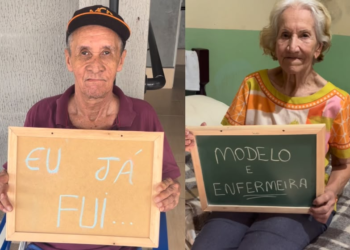 EU JÁ
FUI...
MODELO
E
ENFERMEIRA